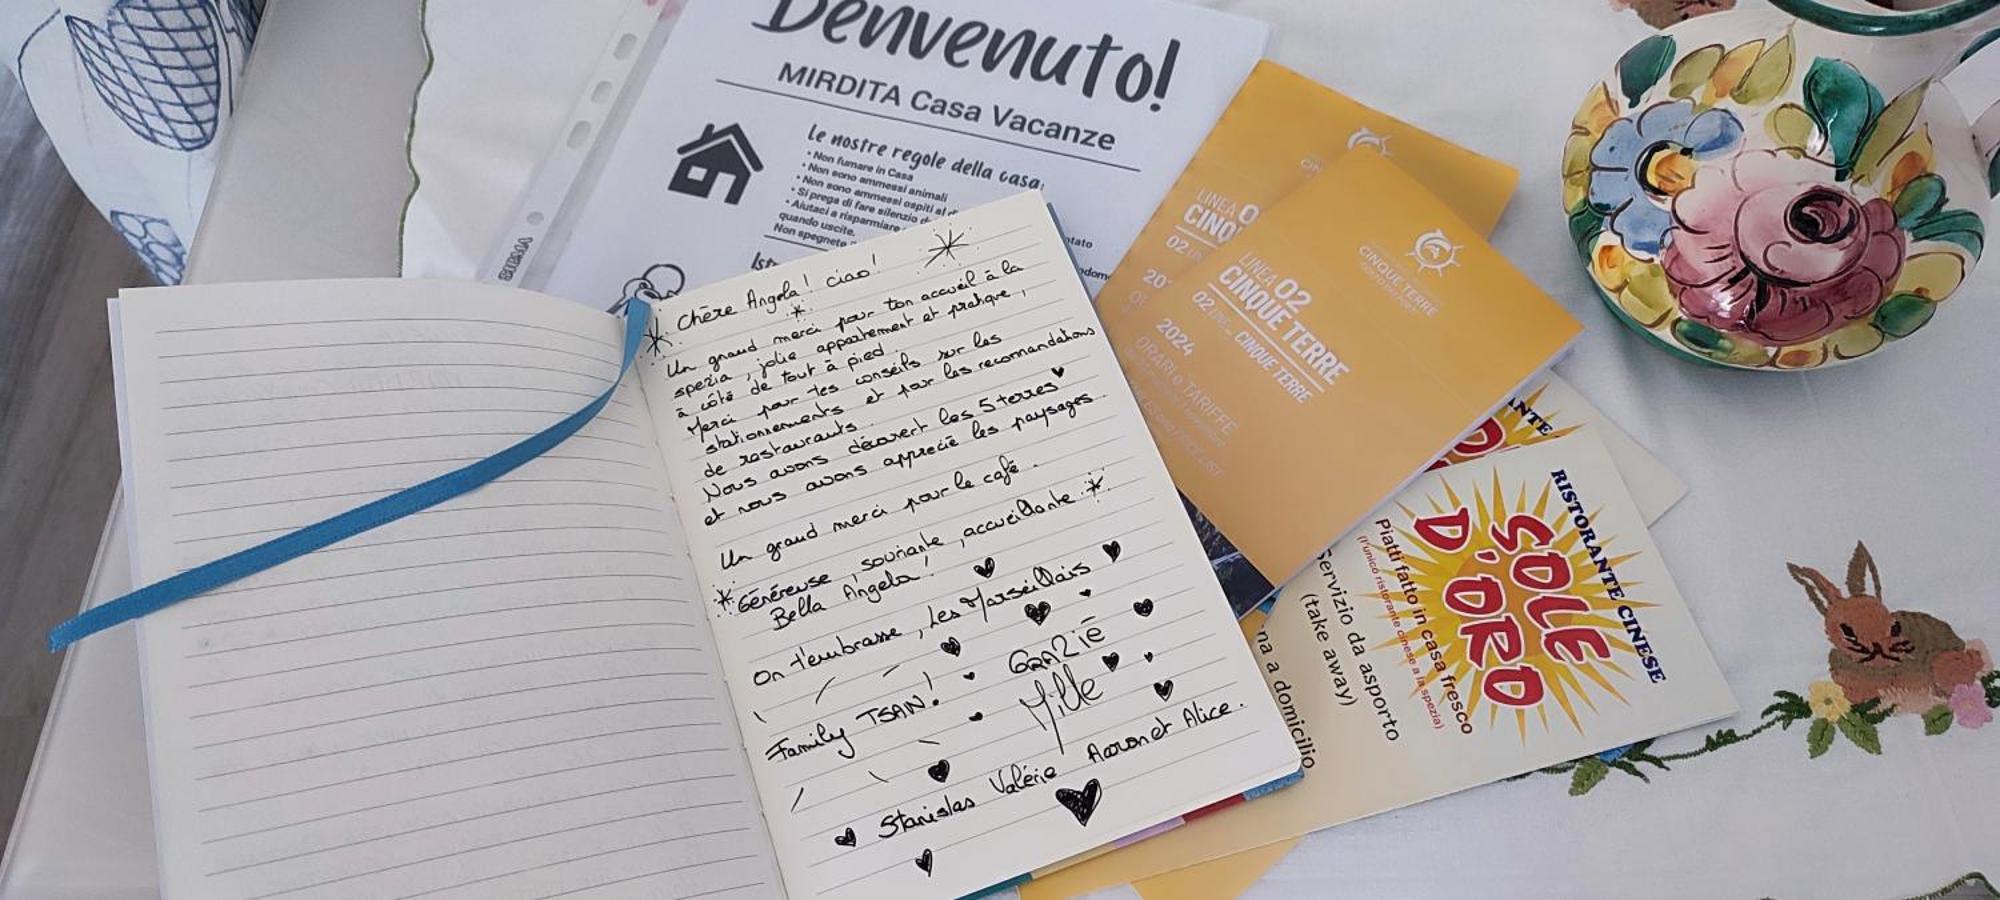 Benvenuto!
MIRDITA Casa Vacanze
Le nostre regole della casa:
• Non fumare in Casa
• Non sono ammessi animali
• Non sono ammessi ospiti al d
• Si prega di fare silenzio d
• Aiutaci a risparmiare
quando uscite.
Non spegnete
Chère Angela! ciao!
Un grand merci pour ton accueil à la
spezia, jolie appartement et pratique,
à côté de tout à pied.
Merci pour tes conseils sur les
stationnements et pour les recomandations
de restaurants.
Nous avons découvert les 5 terres
et nous avons apprecié les paysages.
Un grand merci pour le café.
Généreuse souriante, accueillante
Bella Angela!
On t'embrasse, Les Marseillais
GRAZIE
Mille
Family TSAN!
Stanislas Valérie Aaron et Alice.
LINEA 0
CINQ
02
20
LINEA 02
CINQUE TERRE
02 LINE CINQUE TERRE
2024
ORARI e TARIFFE
CINQUE TERRE
ANTE
RISTORANTE CINESE
SOLE
D'ORO
Piatti fatto in casa fresco
(l'unico ristorante cinese a la spezia)
Servizio da asporto
(take away)
na a domicilio